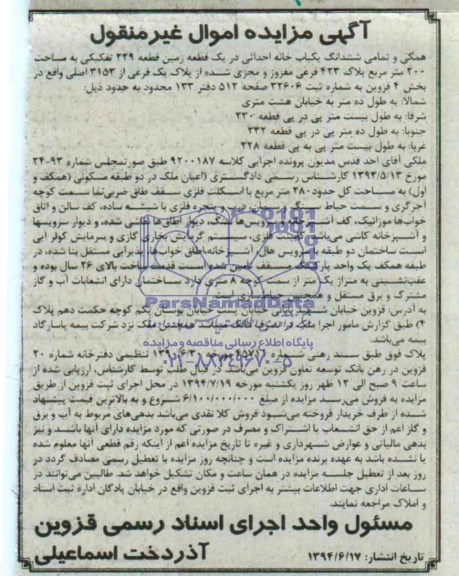 آگهی مزایده اموال غیرمنقول
همگی و تمامی ششدانگ یکباب خانه احداثی در یک قطعه زمین قطعه ۲۲۹ تفکیکی به مساحت
۲۰۰ متر مربع پلاک ۴۲۳ فرعی مفروز و مجزی شده از پلاک یک فرعی از ۳۱۵۳ اصلی واقع در
بخش ۴ قزوین به شماره ثبت ۳۲۶۰۶ صفحه ۵۱۲ دفتر ۱۳۳ محدود به حدود ذیل:
شمالا: به طول ده متر به خیابان هشت متری
شرقا: به طول بیست متر پی در پی قطعه ۲۳۰
جنوبا: به طول ده متر پی در پی قطعه ۲۳۲
غربا: به طول بیست متر پی به پی قطعه ۲۲۸
ملکی آقای احد قدس مدیون پرونده اجرایی کلاسه ۹۲۰۰۱۸۷ طبق صورتمجلس شماره ۹۳-۲۴
مورخ ۱۳۹۴/۵/۱۳ کارشناس رسمی دادگستری (اعیان ملک در دو طبقه مسکونی (همکف و
اول) به مساحت کل حدود ۲۸۰ متر مربع با اسکلت فلزی سقف طاق ضربی نما سمت کوچه
آجرگری و سمت حیاط سنگ و سیمان، درب و پنجره فلزی با شیشه ساده، کف سالن و اتاق
خواب‌ها موزائیک، کف آشپزخانه و سرویس‌ها سنگ، دیوار اطاق‌ها نقاشی شده، و دیوار سرویسها
و آشپزخانه کاشی می‌باشد، کابینت فلزی، سیستم گرمایش بخاری گازی و سرمایش کولر آبی
است ساختمان دو طبقه با سرویس هال آشپزخانه اطاق خواب‌ها پذیرایی مستقل بنا شده، در
طبقه همکف یک واحد پارکینگ مسقف تامین شده است قدمت ساخت بالای ۲۶ سال بوده و
عقب‌نشینی به متراژ یک متر از سمت کوچه ۸ متری دارد ساختمان دارای انشعابات آب و گاز
مشترک و برق مستقل و
به آدرس: قزوین خیابان شهید بابایی خیابان پسند خیابان بوستان یکم کوچه حکمت دهم پلاک
۴) طبق گزارش مامور اجرا ملک در تصرف مالک میباشد همچنین ملک نزد شرکت بیمه پاسارگاد
بیمه می‌باشد.
پلاک فوق طبق سند رهنی شماره تنظیمی دفترخانه شماره ۲۰
قزوین در رهن بانک توسعه تعاون قزوین می‌باشد در قبال طلب توسط کارشناس، ارزیابی شده از
ساعت ۹ صبح الی ۱۲ ظهر روز یکشنبه مورخه ۱۳۹۴/۷/۱۹ در محل اجرای ثبت قزوین از طریق
مزایده به فروش می‌رسد مزایده از مبلغ ۶/۱۰۰/۰۰۰/۰۰۰ شروع و به بالاترین قیمت پیشنهاد
شده از طرف خریدار فروخته می‌شود فروش کلا نقدی می‌باشد بدهی‌های مربوط به آب و برق
و گاز اعم از حق انشعاب یا اشتراک و مصرف در صورتی که مورد مزایده دارای آنها باشد و نیز
بدهی مالیاتی و عوارض شهرداری و غیره تا تاریخ مزایده اعم از اینکه رقم قطعی آنها معلوم شده
یا نشده باشد به عهده برنده مزایده است و چنانچه روز مزایده با تعطیل رسمی مصادف گردد در
روز بعد از تعطیل جلسه مزایده در همان ساعت و مکان تشکیل خواهد شد. طالبین می‌توانند در
ساعات اداری جهت اطلاعات بیشتر به اجرای ثبت قزوین واقع در خیابان پادگان اداره ثبت اسناد
و املاک مراجعه نمایند.
مسئول واحد اجرای اسناد رسمی قزوین
آذردخت اسماعیلی
تاریخ انتشار: ۱۳۹۴/۶/۱۷
ParsNamadData
پایگاه اطلاع رسانی مناقصه و مزایده
۰۲۱-۸۸۳۴۹۶۷۰-۵